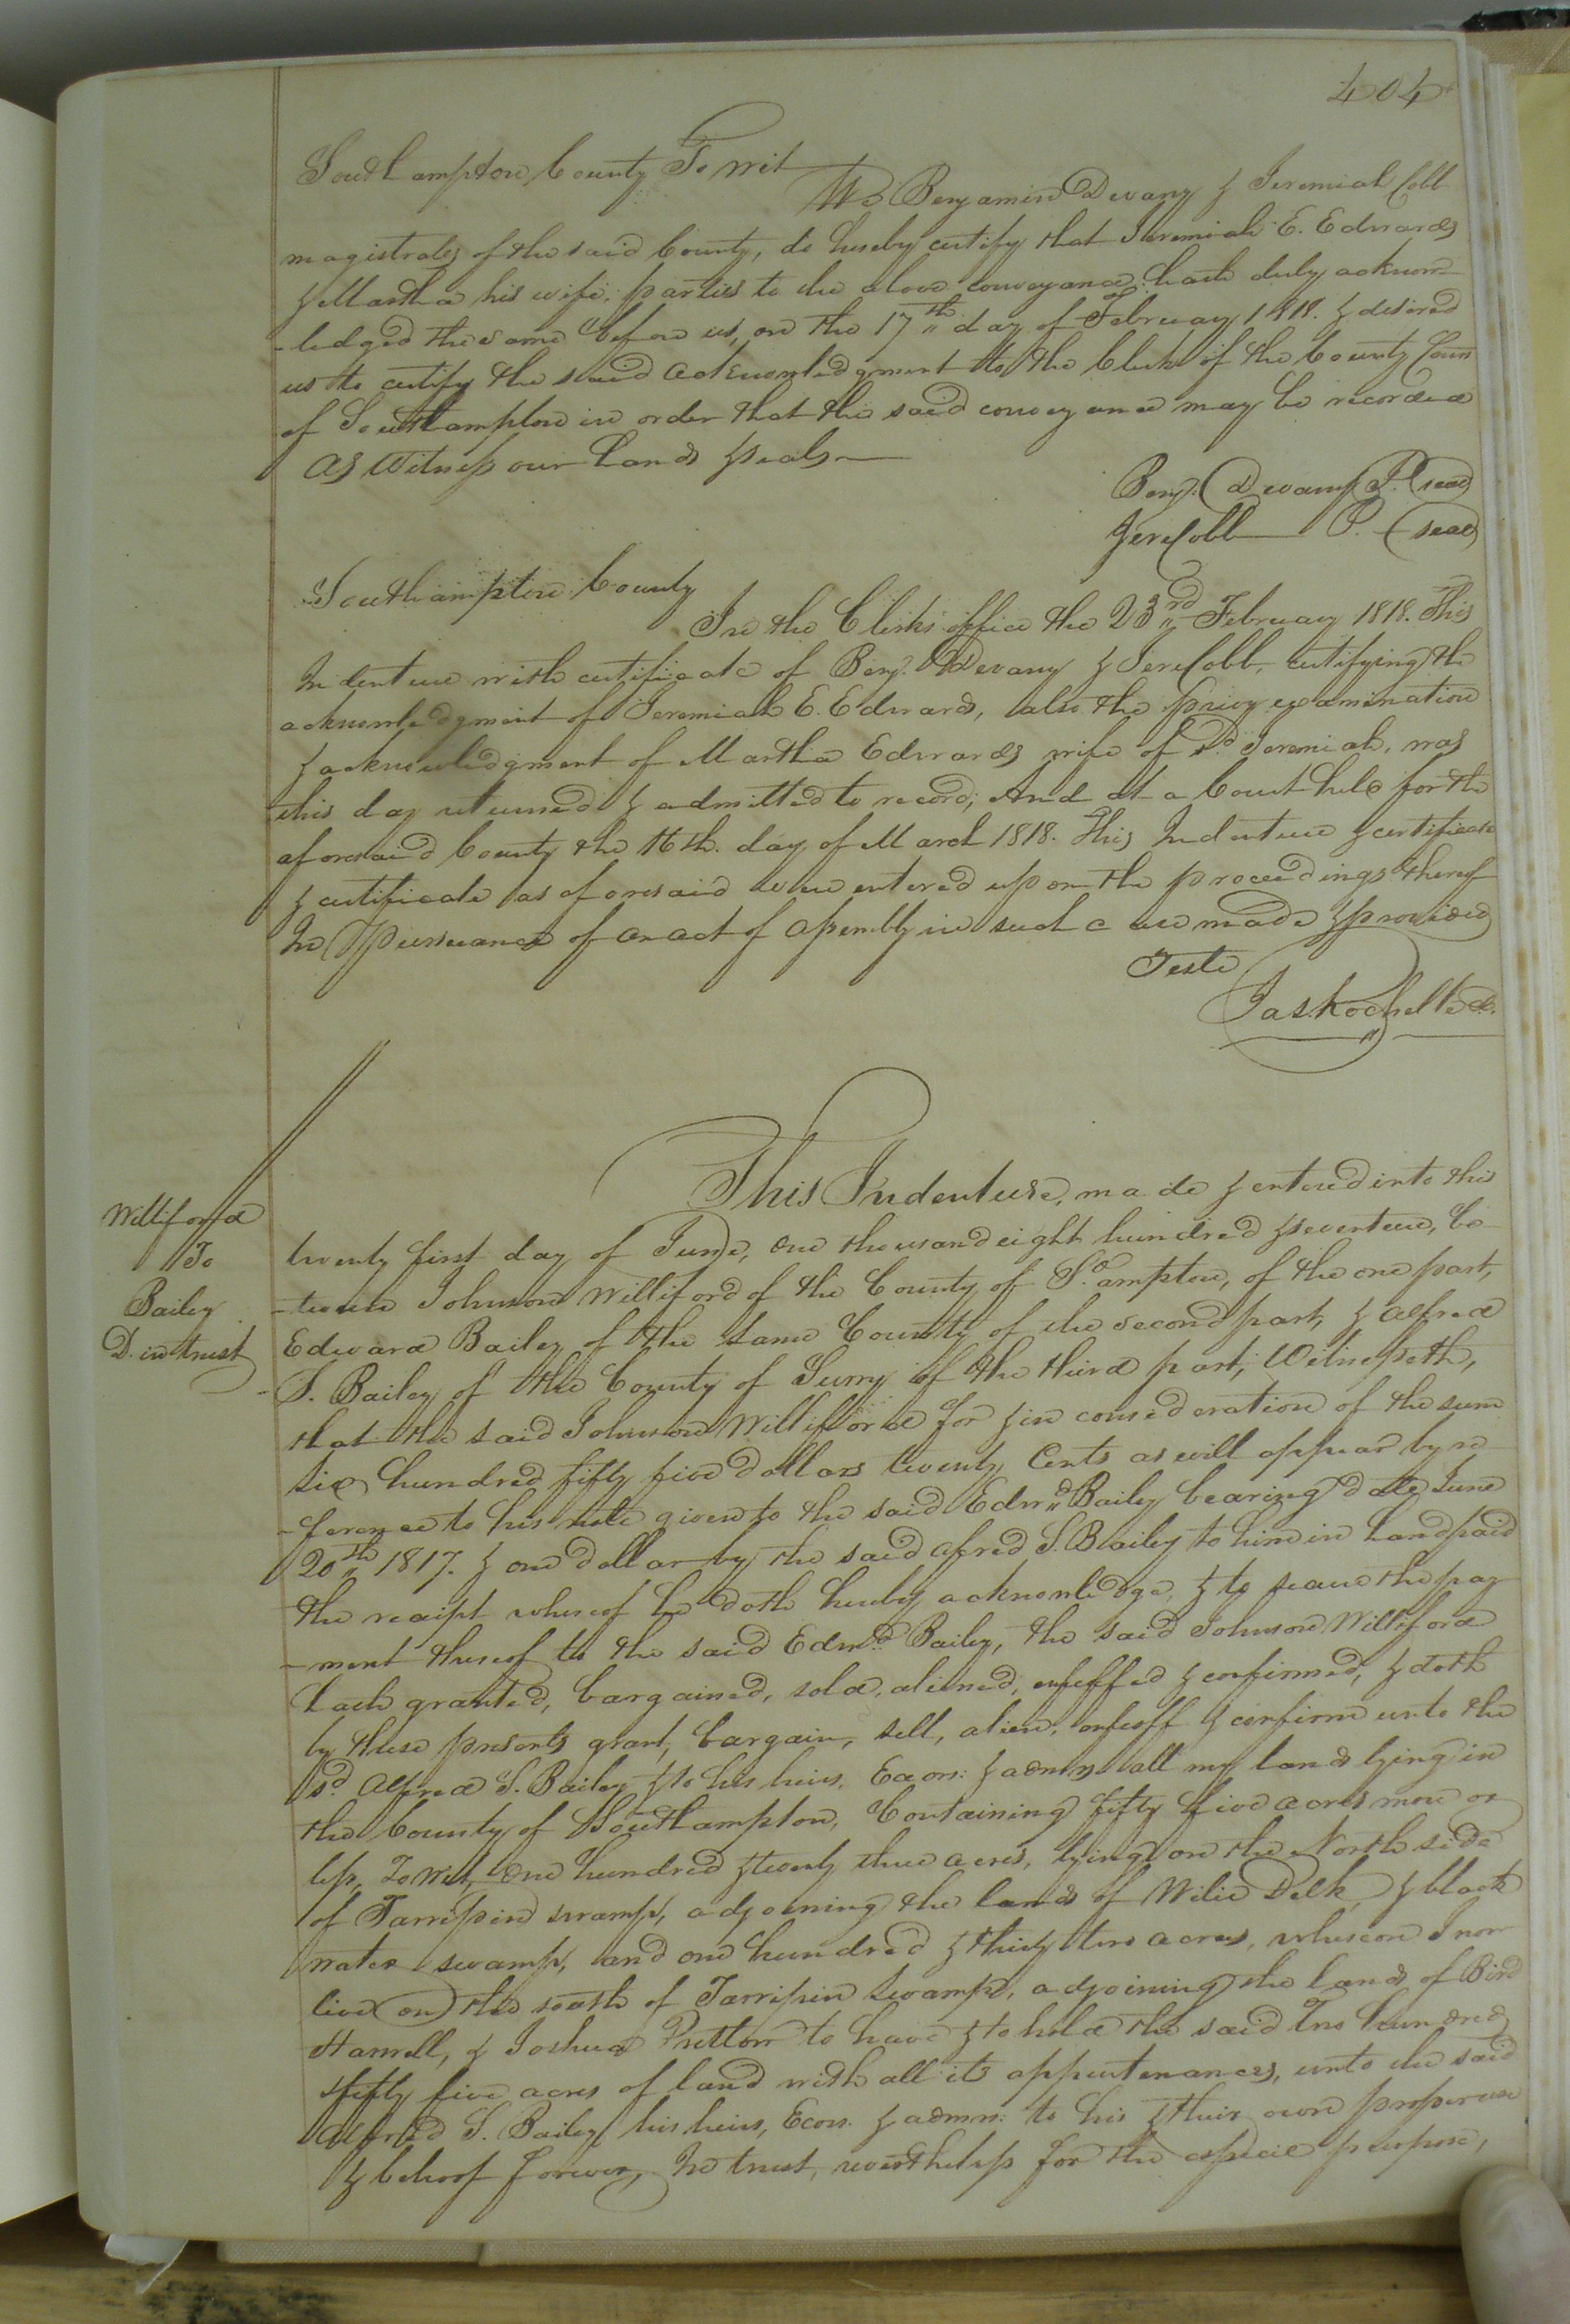 404
Southampton County To wit
We Benjamin Devany & Jeremiah Cobb
magistrates of the said County, do hereby certify that Jeremiah E. Edwards
& Martha his wife, parties to the above conveyance hath duly acknow-
-ledged the same before us, on the 17th day of February 1818. & desired
us to certify the said acknowledgment to the Clerk of the County Court
of Southampton in order that the said conveyance may be recorded
As Witness our hands & seals
Benj. Devany P. (seal)
Jere Cobb P. (seal)
Southampton County
In the Clerks office the 23rd February 1818. This
Indenture with certificate of Benj. Devany & Jere Cobb, certifying the
acknowledgment of Jeremiah E. Edwards, also the privy examination
& acknowledgment of Martha Edwards wife of sd. Jeremiah, was
this day returned & admitted to record; And at a Court held for the
aforesaid County the 16th. day of March 1818. This Indenture & certificate
& certificate as aforesaid were entered upon the proceedings thereof
In Pursuance of an act of Assembly in such case made & provided
Teste
Jas Rochelle C.
Williford
To
Bailey
D. in trust
This Indenture, made & entered into this
twenty first day of June, one thousand eight hundred & seventeen, be-
-tween Johnson Williford of the County of So.ampton, of the one part,
Edward Bailey of the same County of the second part, & Alfred
S. Bailey of the County of Surry of the third part, Witnesseth,
that the said Johnson Williford for & in consideration of the sum
six hundred fifty five dollars twenty Cents as will appear by re-
-ference to his note given to the said Edwd. Bailey bearing date June
20th 1817. & one dollar by the said Afred S. Bailey to him in hand paid
the receipt whereof he doth hereby acknowledge, & to secure the pay-
-ment thereof to the said Edwd. Bailey, the said Johnson Williford
hath granted, bargained, sold, aliened, enfeffed & confirmed, & doth
by these presents grant, bargain, sell, alien, enfeoff & confirm unto the
sd. Alfred S. Bailey & to his heirs, Exors: & admrs all my lands lying in
the County of Southampton, Containing fifty five acres more or
less, To Wit, One hundred & twenty three acres, lying on the North side
of Tarripin swamp, adjoining the lands of Wilie Delk, & black
water swamp, and one hundred & thirty two acres, whereon I now
live on the south of Tarripin swamp, adjoining the lands of Bird
Harrell, & Joshua Pretlow to have & to hold the said Two hundred
& fifty five acres of land with all its appurtenances, unto the said
Alfred S. Bailey, his heirs, Exors. & admrs: to his & their own proper use
& behoof forever, In trust, nevertheless for the especial purpose,